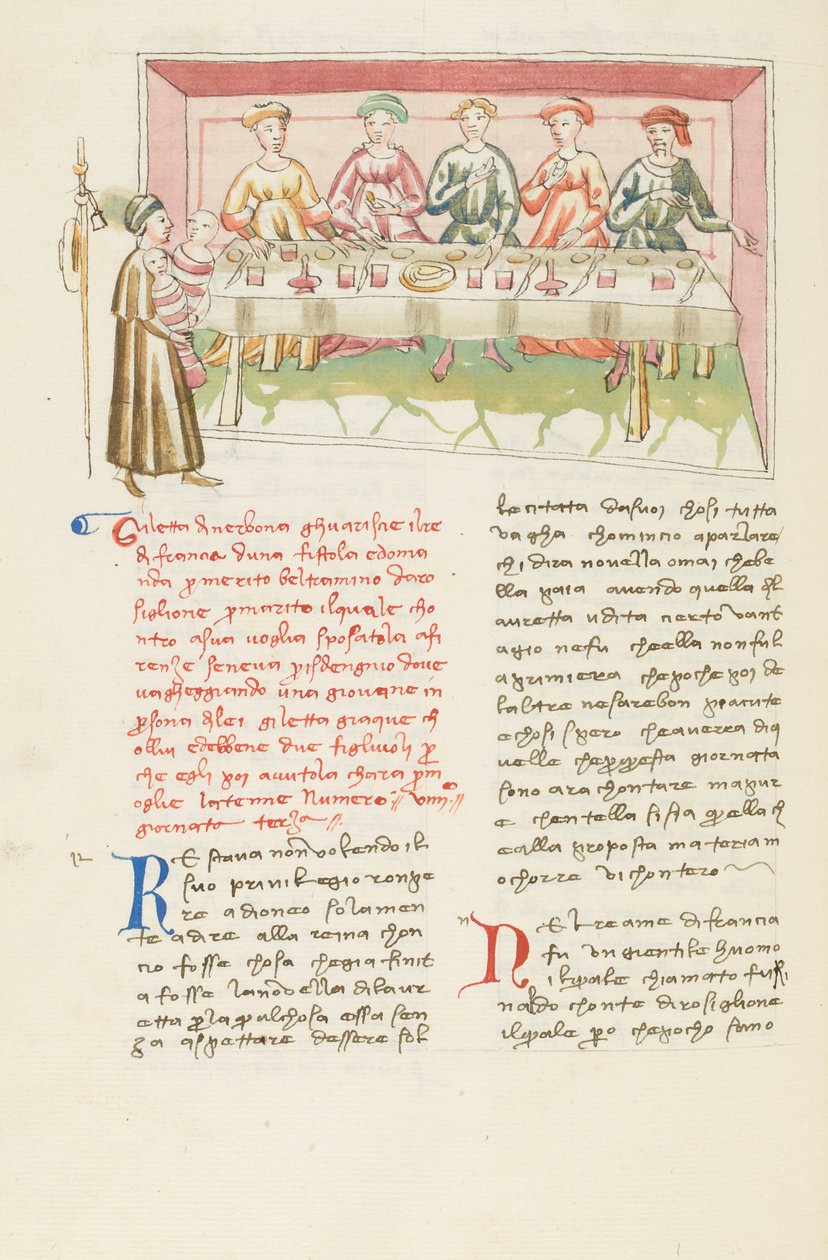 Giletta dinerbona ghuariscie ilre
di francia duna fistola edoma
nda p merito beltramino daro
siglione pmarito ilquale cho
ntro asua voglia sposatola afi
renze seneva pisdengnio dove
vagheggiando una giovane in
psona dilei giletta giaque ch
ollui edebbene due figliuoli p
che egli poi avutola chara pm
oglie latenne Numero viiiiº
giornata terza
RE stava non volendo il
suo privilegio ronpe
re adioneo solamen
te adire alla reina chon
cio fosse chosa chegia finit
a fosse lanovella dilaur
etta pla qualchosa essa sen
za aspettare dessere sol
lecitata dasuoi chosi tutta
vagha chomincio aparlare
chi dira novella omai chebe
lla paia avendo quella di l
auretta udita certo vant
agio nefu cheella nonfu l
aprimiera chepoche poi de
laltre nesarebon piacute
echosi spero cheaverra diq
uelle cheperquesta giornata
sono arachontare ma pur
e chentella sisia quella ch
ealla proposta materiam
ochorre vichontero
NEl reame di francia
fu un gientile huomo
ilquale chiamato fu isi
naldo chonte dirosiglione
ilquale pero chepocho sano